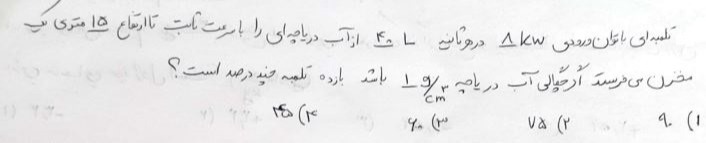 تلمبه‌ای با توان ورودی ۸ kW در هر ثانیه ۴۰ L از آب دریاچه‌ای را با سرعت ثابت تا ارتفاع ۱۵ متری یک
مخزن می‌فرستد اگر چگالی آب دریاچه 1 g/cm³ باشد بازده تلمبه چند درصد است؟
۱) ۹۰ ۲) ۷۵ ۳) ۶۰ ۴) ۴۵